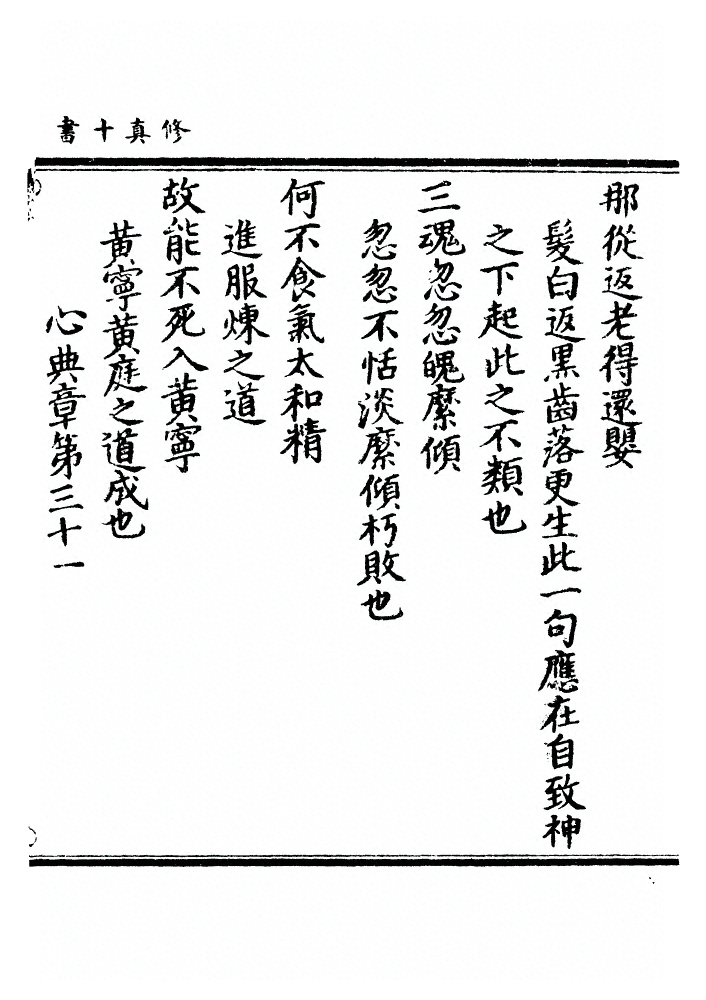 修真十書
那從返老得還嬰
髮白返黑齒落更生此一句應在自致神
之下起此之不類也
三魂忽忽魄縻傾
忽忽不恬淡縻傾朽敗也
何不食氣太和精
進服煉之道
故能不死入黃寧
黃寧黃庭之道成也
心典章第三十一